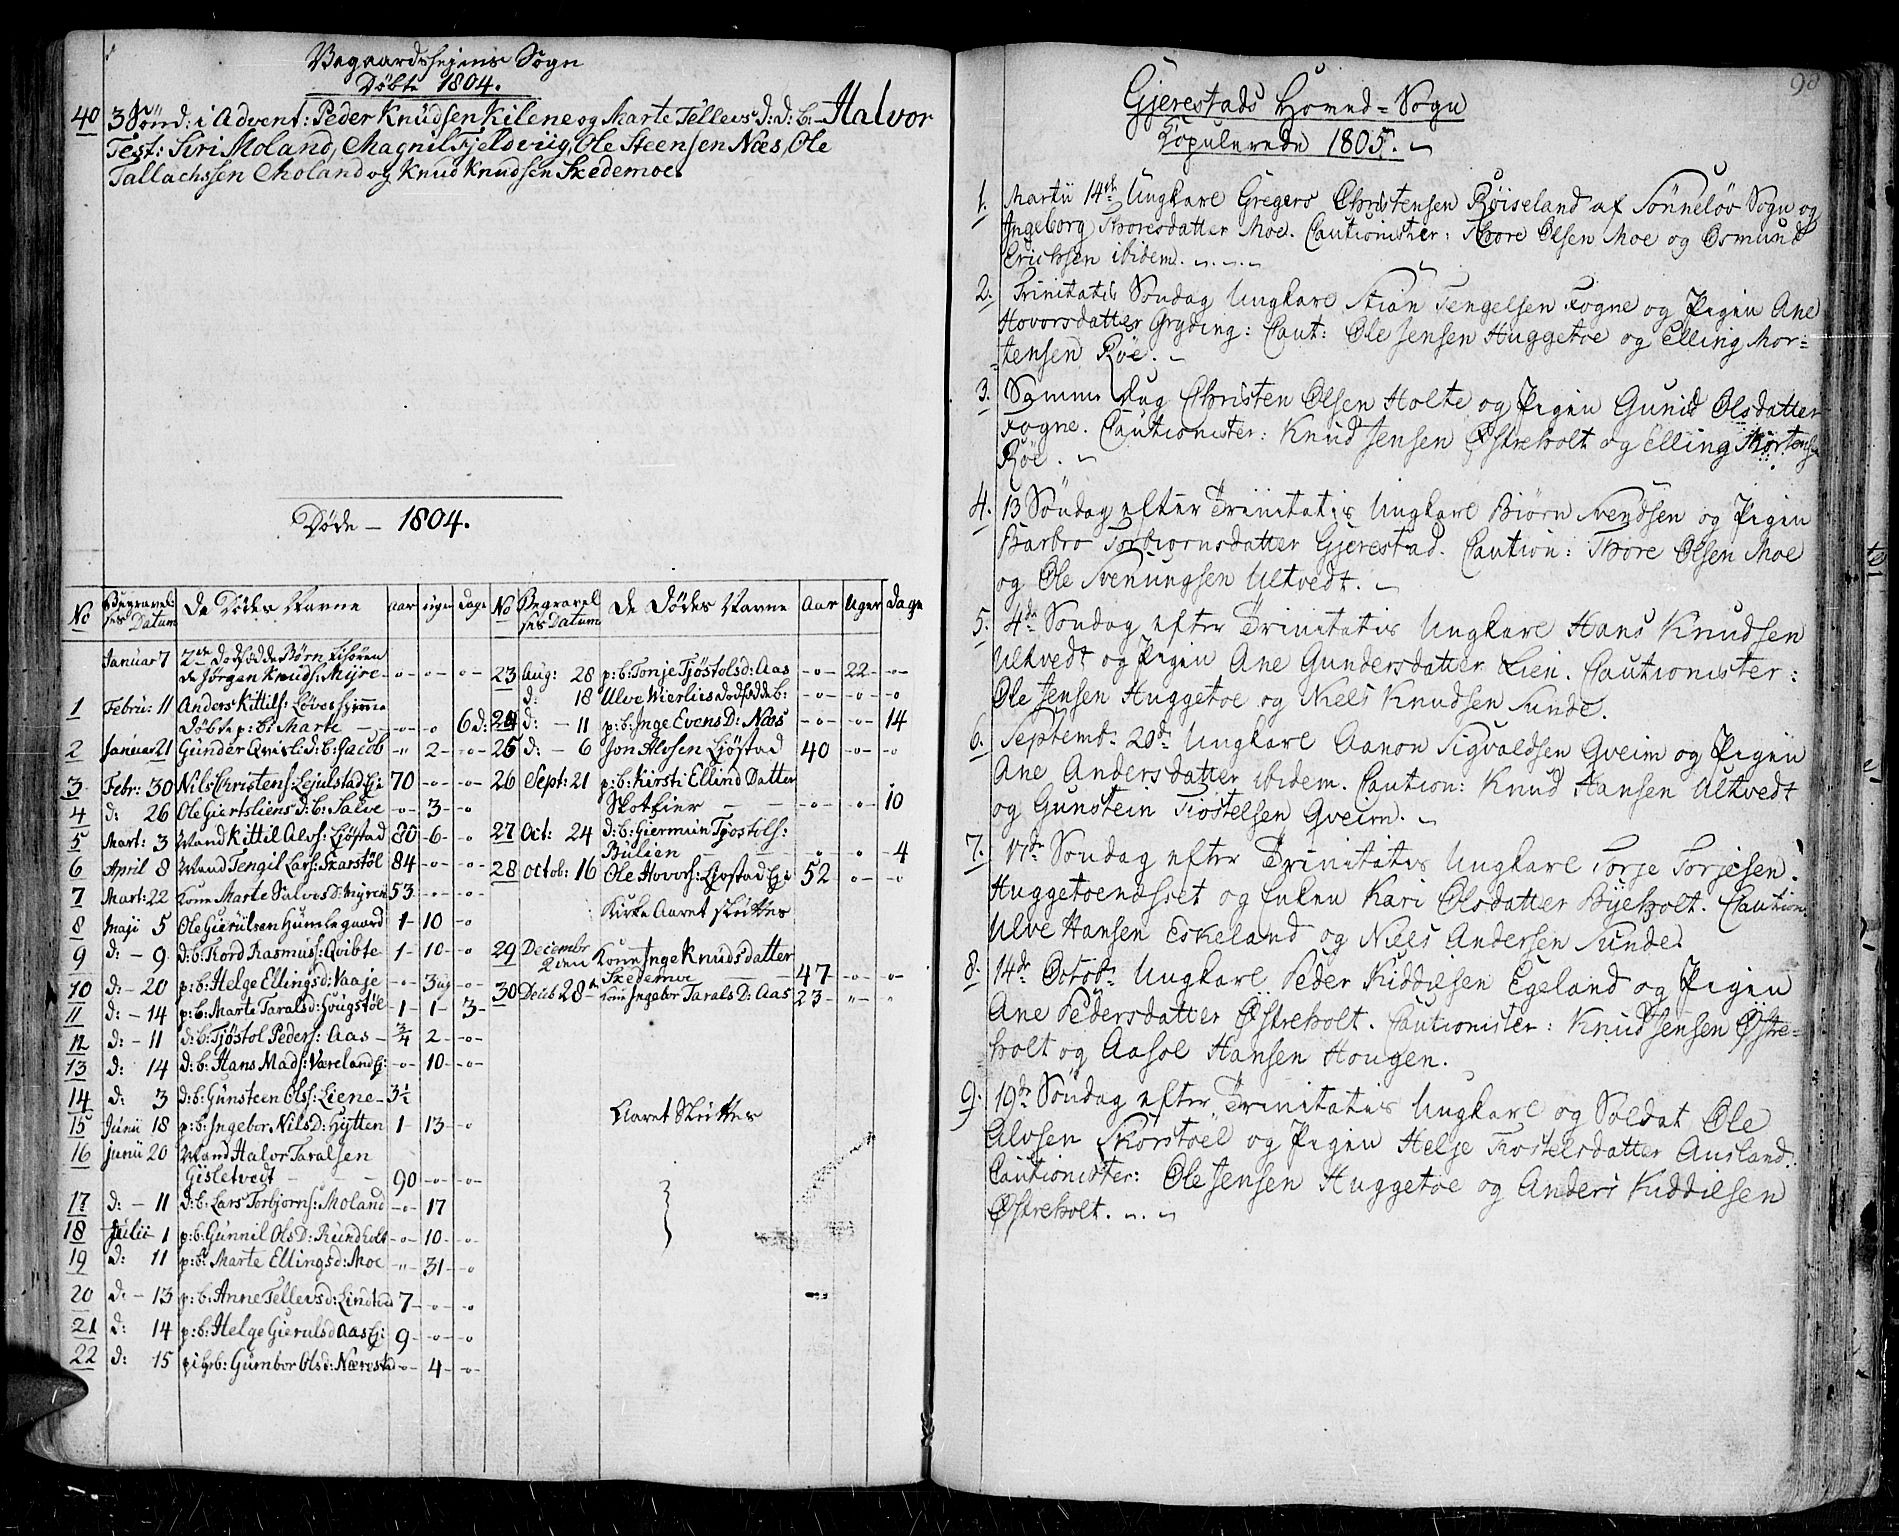 Vegaardshejens Sogn
Døbte 1804.
40 3 Sønd: i Advent: Peder Knudsen Kilene og Marte Tellevs d: d: b: Halvor
Test: Siri Moland, Magnil Fjeldviig, Ole Steensen Næs, Ole
Tallachssen Moland og Knud Knudsen Skedemoe.
Døde - 1804.
No Begravelses Datum De Dødes Navne aar uger Dage
Januar 7 2de Dødfødde Børn
Jørgen Knuds: Myre - o - - o - - o -
1 Febru: 11 Anders Kittils: Løves
Døbte p: b: Marte - - o - o 6 d:
2 Januar 21 Gunder d: b: Jacob " 2 - - o -
3 Febr: 30 Nils Christens: Lejulstad 70 - o - - o -
4 d: 26 Ole Giertsliens d: b: Salve - o - 3 - - o
5 Mart: 3 Mand Kittil Alvs: Ljøstad 80 - 6 - - o
6 April 8 Mand Tengil Lars: Skarstøl 84 - o - - o -
7 Mart: 22 Kone Marte Salves D: Myren 53 - - o - - o
8 Maji 5 Ole Gierulsen Humlegaard 1 - 10 - o
9 d: - 9 d: b: Tord Rasmus: Qvibte 1 - 10 - - o
10 d: - 20 p: b: Helge Ellings d: Vaaje - o - 3 ug - o
11 d: - 14 p: b: Marte Tarals d: Hougstøl 1 - 1 - 3 -
12 d: - 11 d: b: Tjøstol Peders: Aas - 3/4 2 - - o -
13 d: 14 d: b: Hans Mads: Væreland - o - 10 - - o -
14 d: 3 d: b: Gunsteen Ols: Liene - 3 1/2
15 Junii 18 p: b: Ingebor Nils D: Hytten 1 - 13 - - o
16 Junii 20 Mand Halvor Taralsen
Gisletvedt - - - 90 - o - - o -
17 d: - 11 d: b: Lars Torbjorns: Moland - o - 17
18 Julii - 1 p: b: Gunnil Ols D: Rundholt - o - 10 - - o
19 d: 11 p: b: Marte Ellings d: Moe - " - 31 - - o
20 d: - 13 p: b: Anne Tellevs d: Lindtved 7 - - o - - o
21 d: 14 p: b: Helge Gieruls d Aas 9 - o - - o
22 d: 15 Gumbor Ols d: Nærestad - o - 4 - - o
No Begravelses Datum De Dødes Navne Aar Uger Dage
23 Aug: 28 p: b: Tonje Tjøstols d: Aas - o - 22 - - o -
d: 18 Ulve Mierlies dødfødde b: - o - - o - - o
24 d: - 11 p: b: Inge Evens D: Næs - o - - o - 14
25 d: - 6 Jon Alvsen Ljøstad 40 - o - - o
26 Sept: 21 p: b: Kirsti Ellind Datter
Skotfier - - - o - - o - 10
27 Oct: 24 d: b: Giermun Tjøstols:
Bulien - - o - o - 4
28 Octob: 16 Ole Hovors: Ljøstad 52 - o - - o
Kirke Aaret Sluttes
29 Decembr 2den Kone Inge Knudsdatter
Skedemoe - 47 - o - - o -
30 Deceb 28de Kone Ingebor Tarals D: Aas 23 - " - "
Aaret Sluttes
98
Gjerestads Hoved-Sogn
Kopulerede 1805.
1. Martii 14de Ungkarl Gregers Christensen Røiseland af Sønneløv Sogn og
Ingeborg Thoresdatter Moe. Cautionister: Thore Olsen Moe og Osmund
Erichsen ibidem.
2. Trinitatis Søndag Ungkarl Stian Tengelsen Fogne og Pigen Ane
Hovorsdatter Gryding: Caut: Ole Jensen Huggetoe og Elling Mor=
=tensen Røe.
3. Samme Dag Christen Olsen Holte og Pigen Gunild Olsdatter
Fogne. Cautionister: Knud Jensen Østreholt og Elling Mortensen
Røe.
4. 13 Søndag efter Trinitatis Ungkarl Biørn Svendsen og Pigen
Barbro Torbiornsdatter Gjerestad. Caution: Thore Olsen Moe
og Ole Svenungsen Ulkvedt.
5. 4de Søndag efter Trinitatis Ungkarl Hans Knudsen
Ulkvedt og Pigen Ane Gundersdatter Lien. Cautionister:
Ole Jensen Huggetoe og Niels Knudsen Sunde.
6. Septembr 20de Ungkarl Aanon Sigvaldsen Gveim og Pigen
Ane Andersdatter ibidem. Caution: Knud Hansen Ulkvedt
og Gunstein Tiostelsen Gveim.
7. 17de Søndag efter Trinitatis Ungkarl Torje Torjesen
Huggetoenæsset og Enken Kari Olsdatter Byeholt. Caution:
Ulve Hansen Eskeland og Niels Andersen Sunde.
8. 14de Octobr Ungkarl Peder Kiddilsen Egeland og Pigen
Ane Pedersdatter Østreholt. Cautionister: Knud Jensen Østre=
holt og Aasol Hansen Hougen.
9. 19de Søndag efter Trinitatis Ungkarl og Soldat Ole
Alvsen Skorstoel og Pigen Helje Tiostelsdatter Ausland.
Cautionister: Ole Jensen Huggetoe og Anders Kiddilsen
Østreholt.